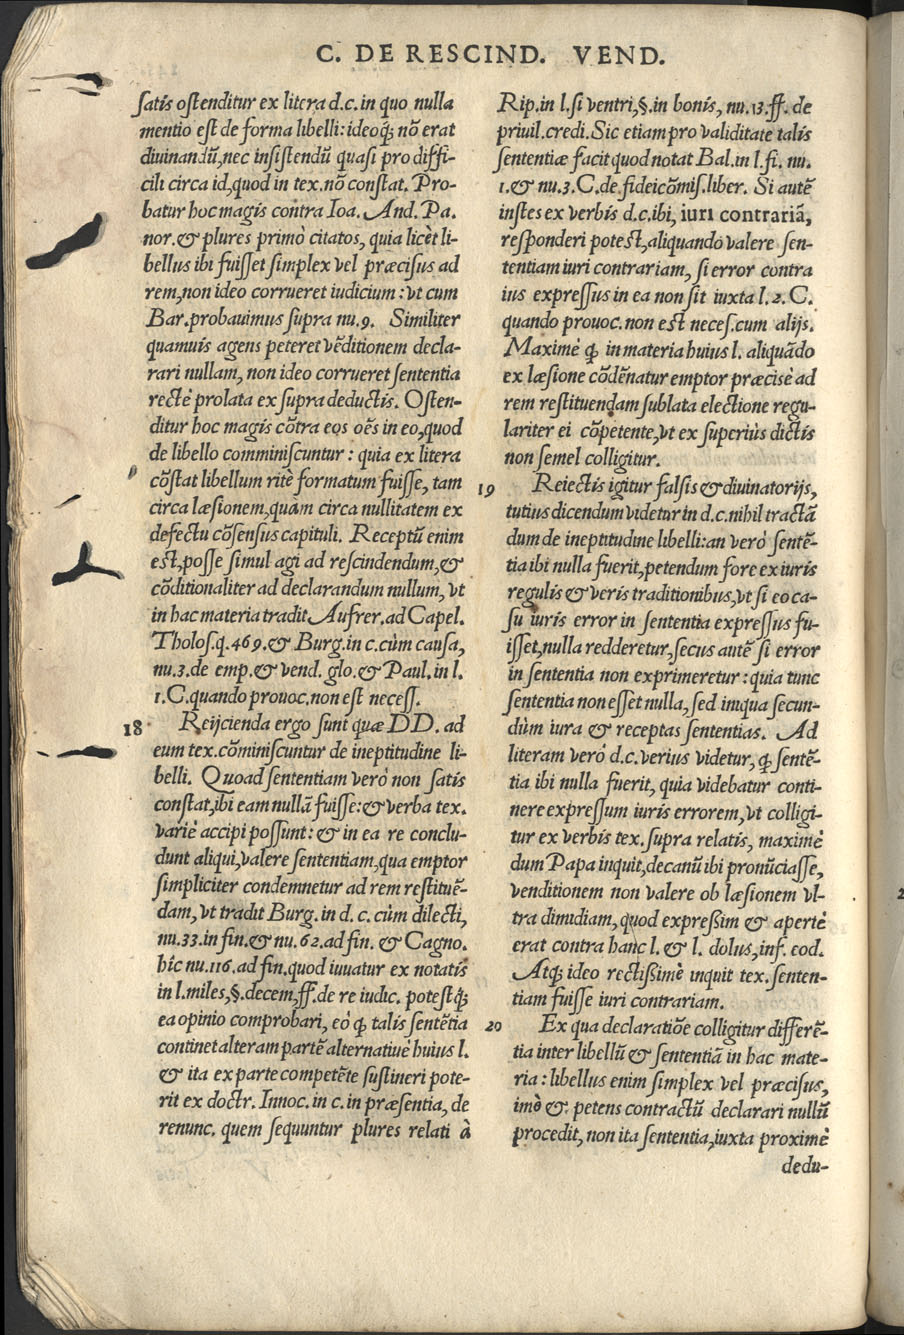 C. DE RESCIND. VEND.
satis ostenditur ex litera d.c. in quo nulla
mentio est de forma libelli: ideoq́; nõ erat
diuinandũ, nec insistendũ quasi pro diffi-
cili circa id, quod in tex. nõ constat. Pro-
batur hoc magis contra Ioa. And. Pa.
nor. & plures primò citatos, quia licèt li-
bellus ibi fuisset simplex vel præcisus ad
rem, non ideo corrueret iudicium: vt cum
Bar. probauimus supra nu. 9. Similiter
quamuis agens peteret vẽditionem decla-
rari nullam, non ideo corrueret sententia
rectè prolata ex supra deductis. Osten-
ditur hoc magis cõtra eos oẽs in eo, quod
de libello comminiscuntur: quia ex litera
cõstat libellum ritè formatum fuisse, tam
circa læsionem, quam circa nullitatem ex
defectu cõsensus capituli. Receptũ enim
est, posse simul agi ad rescindendum, &
cõditionaliter ad declarandum nullum, vt
in hac materia tradit Aufrer. ad Capel.
Tholos. q. 469. & Burg. in c. cùm causa,
nu. 3. de emp. & vend. glo. & Paul. in l.
1. C. quando prouoc. non est necess.
18 Reijcienda ergo sunt quæ DD. ad
eum tex. cõminiscuntur de ineptitudine li-
belli. Quoad sententiam verò non satis
constat, ibi eam nullã fuisse: & verba tex.
variè accipi possunt: & in ea re conclu-
dunt aliqui, valere sententiam, qua emptor
simpliciter condemnetur ad rem restituẽ-
dam, vt tradit Burg. in d. c. cùm dilecti,
nu. 33. in fin. & nu. 62. ad fin. & Cagno.
hîc nu. 116. ad fin. quod iuuatur ex notatis
in l. miles, §. decem, ff. de re iudic. potestq́;
ea opinio comprobari, eò ꝙ talis sentẽtia
continet alteram partẽ alternatiuè huius l.
& ita ex parte competẽte sustineri pote-
rit ex doctr. Innoc. in c. in præsentia, de
renunc. quem sequuntur plures relati à
Rip. in l. si ventri, §. in bonis, nu. 13. ff. de
priuil. credi. Sic etiam pro validitate talis
sententiæ facit quod notat Bal. in l. fi. nu.
1. & nu. 3. C. de fideicõmis. liber. Si autẽ
instes ex verbis d.c. ibi, iuri contrariã,
responderi potest, aliquando valere sen-
tentiam iuri contrariam, si error contra
ius expressus in ea non sit iuxta l. 2. C.
quando prouoc. non est neces. cum alijs.
Maximè ꝙ in materia huius l. aliquãdo
ex læsione cõdẽnatur emptor præcisè ad
rem restituendam sublata electione regu-
lariter ei cõpetente, vt ex superiùs dictis
non semel colligitur.
19 Reiectis igitur falsis & diuinatorijs,
tutius dicendum videtur in d.c. nihil tractã
dum de ineptitudine libelli: an verò sentẽ-
tia ibi nulla fuerit, petendum fore ex iuris
regulis & veris traditionibus, vt si eo ca-
su iuris error in sententia expressus fu-
isset, nulla redderetur, secus autẽ si error
in sententia non exprimeretur: quia tunc
sententia non esset nulla, sed iniqua secun-
dùm iura & receptas sententias. Ad
literam verò d.c. verius videtur, ꝙ sentẽ-
tia ibi nulla fuerit, quia videbatur conti-
nere expressum iuris errorem, vt colligi-
tur ex verbis tex. supra relatis, maximè
dum Papa inquit, decanũ ibi pronũciasse,
venditionem non valere ob læsionem vl-
tra dimidiam, quod expreßim & apertè
erat contra hanc l. & l. dolus, inf. eod.
Atq́; ideo rectißimè inquit tex. senten-
tiam fuisse iuri contrariam.
20 Ex qua declaratiõe colligitur differẽ-
tia inter libellũ & sententiã in hac mate-
ria: libellus enim simplex vel præcisus,
imò & petens contractũ declarari nullũ
procedit, non ita sententia, iuxta proximè
dedu-